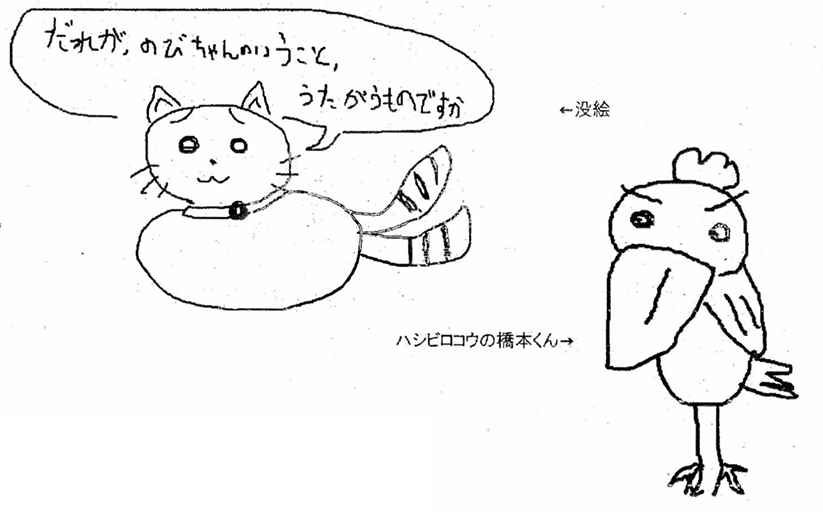 だれが、のびちゃんのいうこと、
うたがうものですか
←没絵
ハシビロコウの橋本くん→